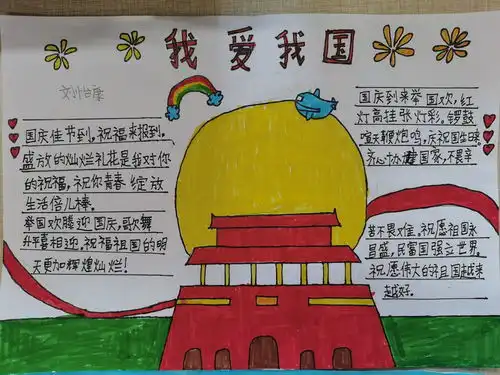 我爱我国
国庆佳节到,祝福来报到,
盛放的灿烂礼花是我对你
的祝福,祝你青春绽放
生活倍儿棒。
举国欢腾迎国庆,歌舞
升平喜相迎,祝福祖国的明
天更加辉煌灿烂!
国庆到来举国欢,红
灯高挂张灯彩,锣鼓
喧天鞭炮鸣,庆祝国生日。
齐心协力建国家,不畏辛
苦不畏难,祝愿祖国永
昌盛,民富国强立世界。
祝愿伟大的祖国越来
越好。